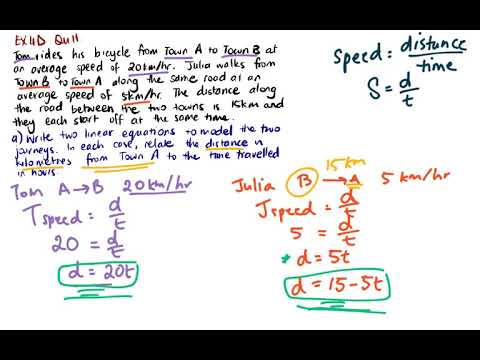 EX4D Qu11
Tom rides his bicycle from Town A to Town B at
an average speed of 20km/hr. Julia walks from
Town B to Town A along the same road at an
average speed of 5km/hr. The distance along
the road between the two towns is 15km and
they each start off at the same time.
a) Write two linear equations to model the two
journeys. In each case, relate the distance in
kilometres from Town A to the time travelled
in hours.
Speed = distance/time
S = d/t
Tom A → B 20km/hr
Tspeed = d/t
20 = d/t
d = 20t
15km
Julia B → A 5 km/hr
Jspeed = d/t
5 = d/t
* d = 5t
d = 15 - 5t